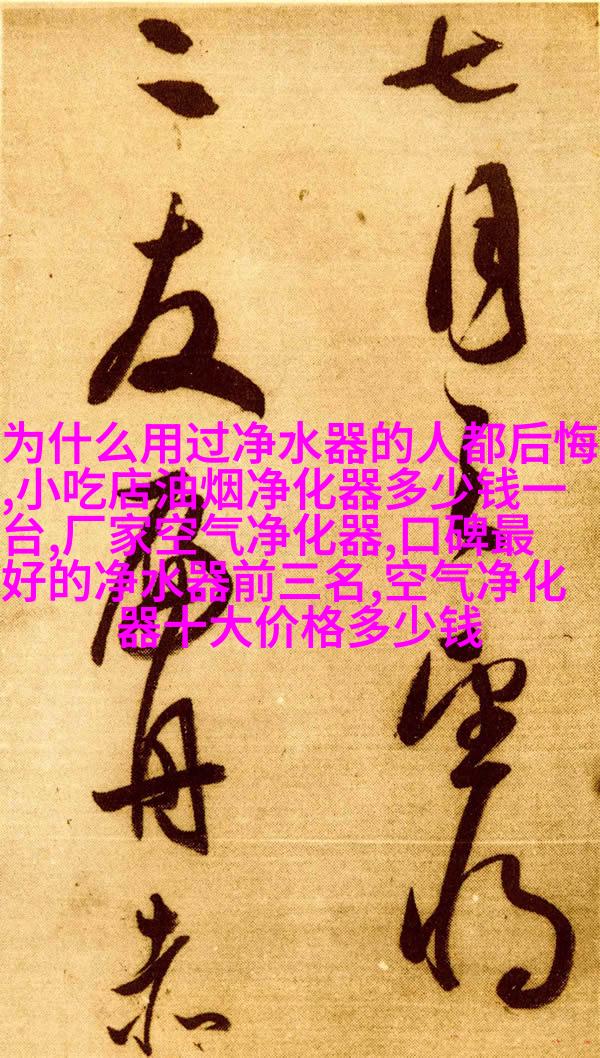 七月之望将
二友扁舟赤
为什么用过净水器的人都后悔
,小吃店油烟净化器多少钱一
台,厂家空气净化器,口碑最
好的净水器前三名,空气净化
器十大价格多少钱